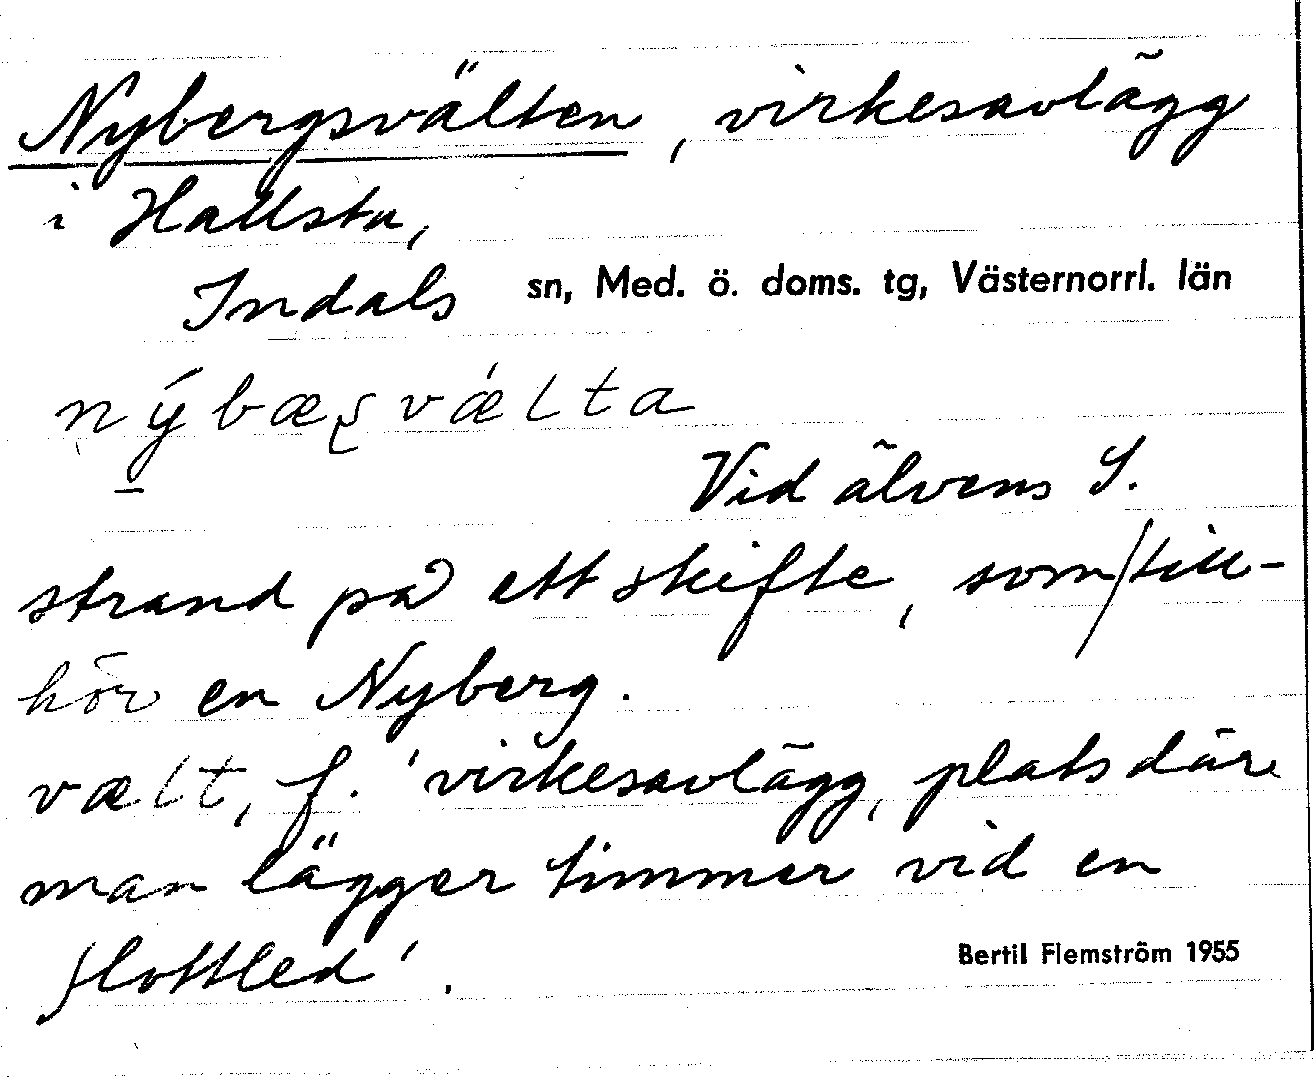 Nybergsvälten, virkesavlägg
i Hallsta,
Indals sn, Med. ö. doms. tg, Västernorrl. län
nýbæʂvǽlta
Vid älvens S.
strand på ett skifte, som till-
hör en Nyberg.
vælt, f. 'virkesavlägg, plats där
man lägger timmer vid en
flottled'.
Bertil Flemström 1955